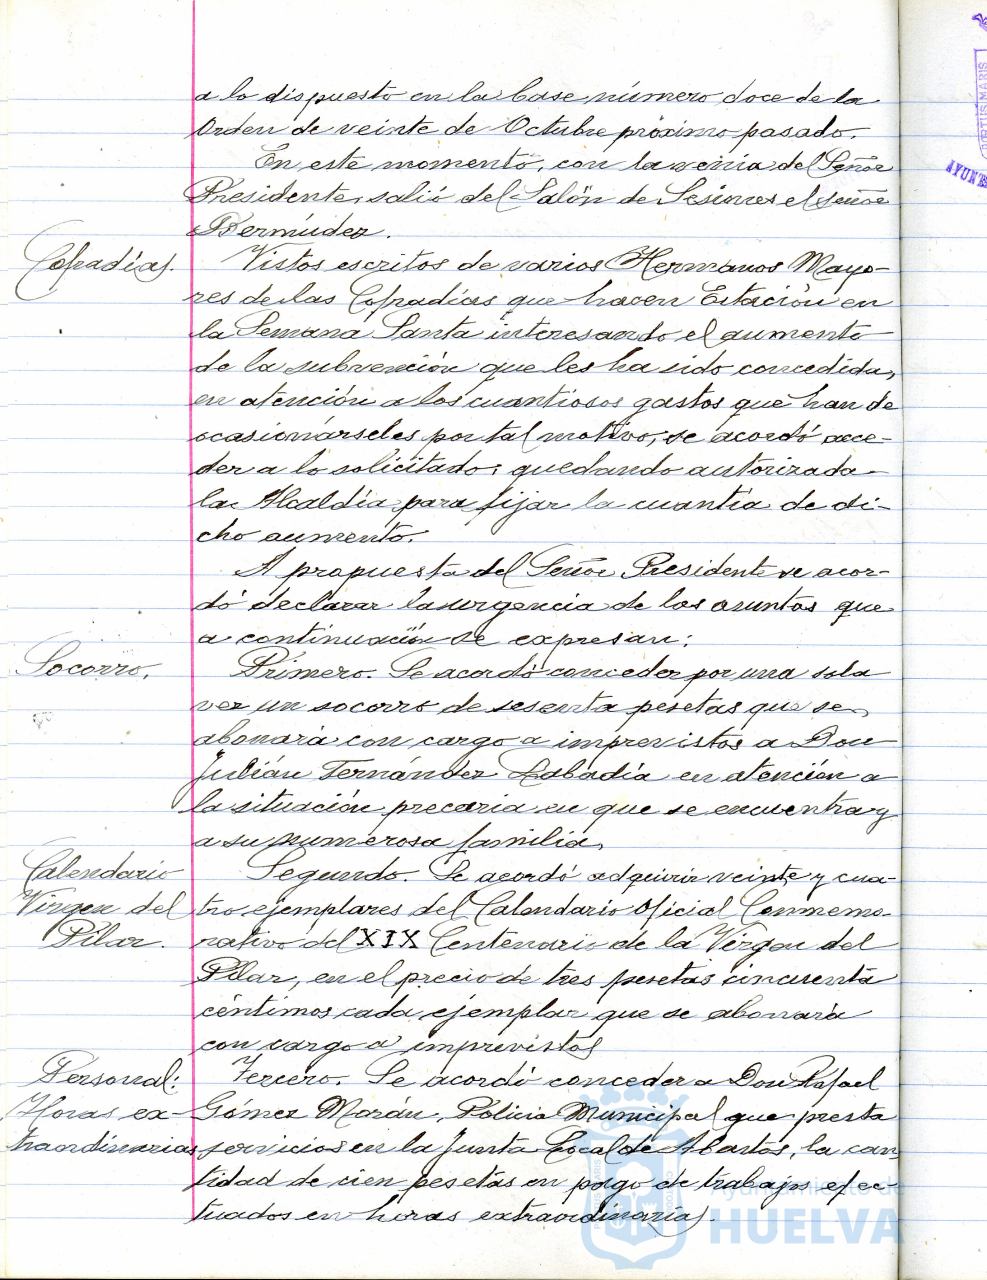 a lo dispuesto en la base número doce de la
Orden de veinte de Octubre próximo pasado.
En este momento, con la venia del Señor
Presidente, salió del Salón de Sesiones el señor
Bermúdez.
Cofradías.
Vistos escritos de varios Hermanos Mayo-
res de las Cofradías que hacen Estación en
la Semana Santa interesando el aumento
de la subvención que les ha sido concedida,
en atención a los cuantiosos gastos que han de
ocasionárseles por tal motivo, se acordó acce-
der a lo solicitado, quedando autorizada
la Alcaldía para fijar la cuantía de di-
cho aumento.
A propuesta del Señor Presidente se acor-
dó declarar la urgencia de los asuntos que
a continuación se expresan:
Socorro.
Primero. Se acordó conceder por una sola
vez un socorro de sesenta pesetas que se
abonará con cargo a imprevistos a Don
Julián Fernández Labadía en atención a
la situación precaria en que se encuentra y
a su numerosa familia.
Calendario
Virgen del
Pilar.
Segundo. Se acordó adquirir veinte y cua-
tro ejemplares del Calendario Oficial Conmemo-
rativo del XIX Centenario de la Virgen del
Pilar, en el precio de tres pesetas cincuenta
céntimos cada ejemplar que se abonará
con cargo a imprevistos
Personal:
Horas ex-
traordinarias
Tercero. Se acordó conceder a Don Rafael
Gómez Marán, Policía Municipal que presta
servicios en la Junta Local de Abastos, la can-
tidad de cien pesetas en pago de trabajos efec-
tuados en horas extraordinarias.
Ayuntamiento de
HUELVA
PORTUS MARIS